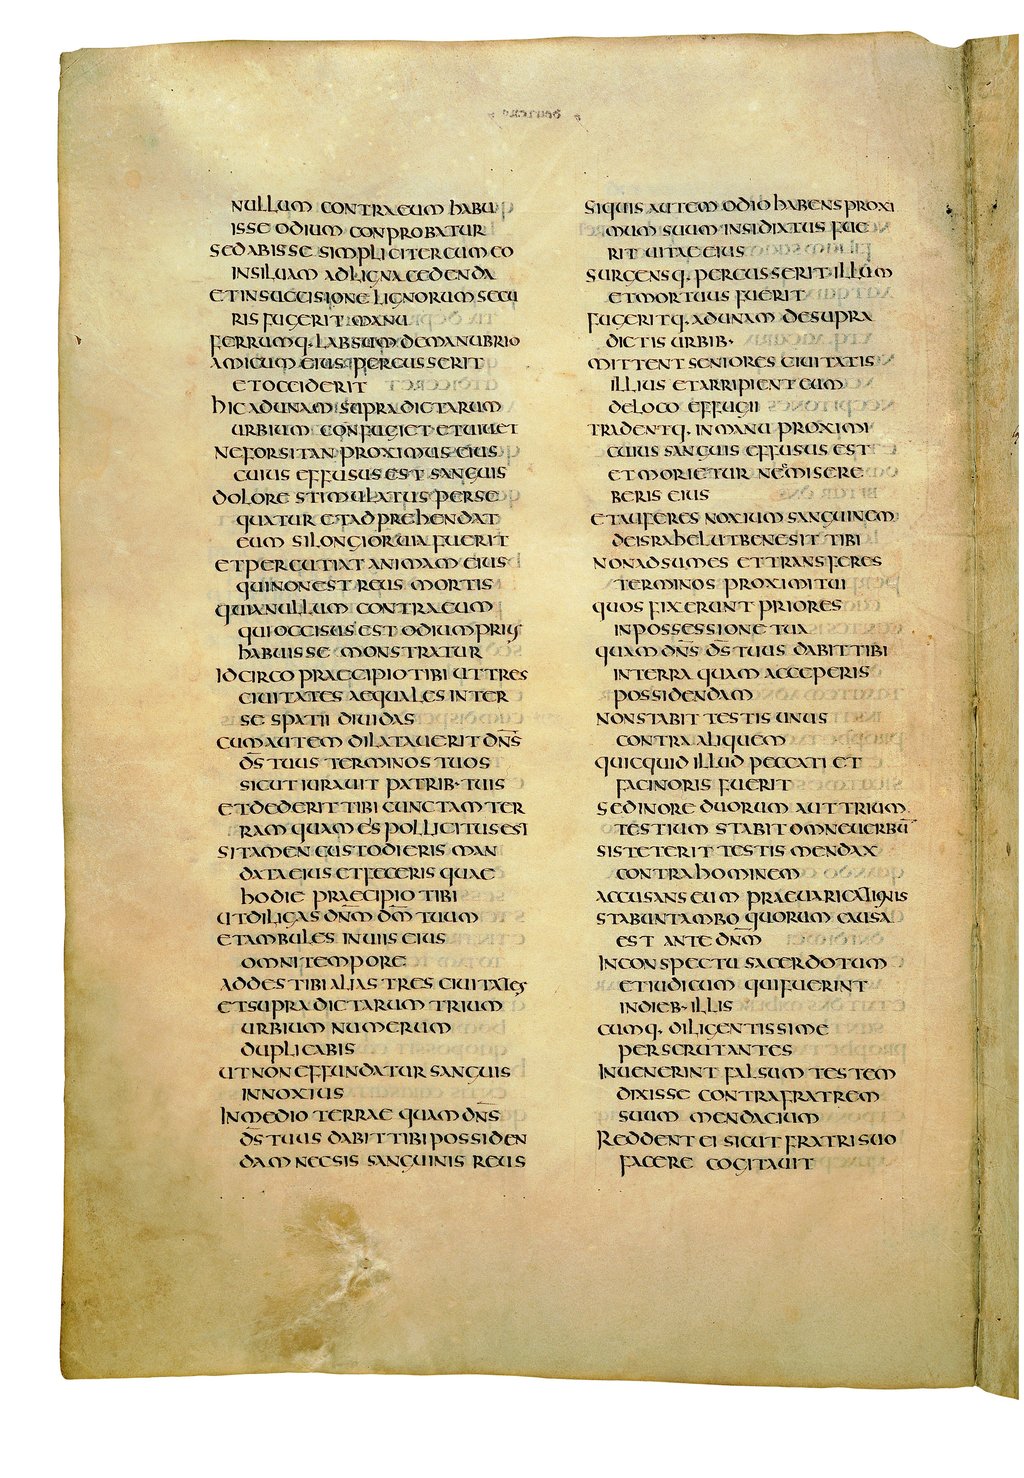 NULLUM CONTRA EUM HABU
ISSE ODIUM CONPROBATUR
SED ABISSE SIMPLICITER CUM EO
IN SILUAM AD LIGNA CEDENDA
ET IN SUCCISIONE LIGNORUM SECU
RIS FUGERIT MANU
FERRUMQ· LABSUM DE MANUBRIO
AMICUM EIUS PERCUSSERIT
ET OCCIDERIT
HIC AD UNAM SUPRA DICTARUM
URBIUM CONFUGIET ET UIUET
NE FORSITAN PROXIMUS EIUS
CUIUS EFFUSUS EST SANGUIS
DOLORE STIMULATUS PERSE
QUATUR ET ADPREHENDAT
EUM SI LONGIOR UIA FUERIT
ET PERCUTIAT ANIMAM EIUS
QUI NON EST REUS MORTIS
QUIA NULLUM CONTRA EUM
QUI OCCISUS EST ODIUM PRIUS
HABUISSE MONSTRATUR
IDCIRCO PRAECIPIO TIBI UT TRES
CIUITATES AEQUALES INTER
SE SPATII DIUIDAS
CUM AUTEM DILATAUERIT DN̅S̅
D̅S̅ TUUS TERMINOS TUOS
SICUT IURAUIT PATRIB· TUIS
ET DEDERIT TIBI CUNCTAM TER
RAM QUAM EIS POLLICITUS EST
SI TAMEN CUSTODIERIS MAN
DATA EIUS ET FECERIS QUAE
HODIE PRAECIPIO TIBI
UT DILIGAS DN̅M̅ D̅M̅ TUUM
ET AMBULES IN UIIS EIUS
OMNI TEMPORE
ADDES TIBI ALIAS TRES CIUITATES
ET SUPRA DICTARUM TRIUM
URBIUM NUMERUM
DUPLICABIS
UT NON EFFUNDATUR SANGUIS
INNOXIUS
IN MEDIO TERRAE QUAM DN̅S̅
D̅S̅ TUUS DABIT TIBI POSSIDEN
DAM NEC SIS SANGUINIS REUS
SI QUIS AUTEM ODIO HABENS PROXI
MUM SUUM INSIDIATUS FUE
RIT UITAE EIUS
SURGENSQ· PERCUSSERIT ILLUM
ET MORTUUS FUERIT
FUGERITQ· AD UNAM DE SUPRA
DICTIS URBIB·
MITTENT SENIORES CIUITATIS
ILLIUS ET ARRIPIENT EUM
DE LOCO EFFUGII
TRADENTQ· IN MANU PROXIMI
CUIUS SANGUIS EFFUSUS EST
ET MORIETUR NEC MISERE
BERIS EIUS
ET AUFERES NOXIUM SANGUINEM
DE ISRAHEL UT BENE SIT TIBI
NON ADSUMES ET TRANSFERES
TERMINOS PROXIMI TUI
QUOS FIXERUNT PRIORES
IN POSSESSIONE TUA
QUAM DN̅S̅ D̅S̅ TUUS DABIT TIBI
IN TERRA QUAM ACCEPERIS
POSSIDENDAM
NON STABIT TESTIS UNUS
CONTRA ALIQUEM
QUICQUID ILLUD PECCATI ET
FACINORIS FUERIT
SED IN ORE DUORUM AUT TRIUM
TESTIUM STABIT OMNE UERBU̅
SI STETERIT TESTIS MENDAX
CONTRA HOMINEM
ACCUSANS EUM PRAEUARICATIONIS
STABUNT AMBO QUORUM CAUSA
EST ANTE DN̅M̅
IN CONSPECTU SACERDOTUM
ET IUDICUM QUI FUERINT
IN DIEB· ILLIS
CUMQ· DILIGENTISSIME
PERSCRUTANTES
INUENERINT FALSUM TESTEM
DIXISSE CONTRA FRATREM
SUUM MENDACIUM
REDDENT EI SICUT FRATRI SUO
FACERE COGITAUIT